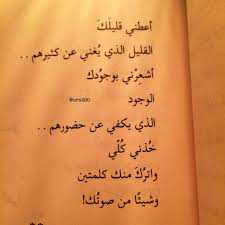 أعطني قليلَكَ
القليل الذي يُغني عن كثيرهم . .
أشعِرْني بوجودك
الوجود
@urs400
الذي يكفي عن حضورهم . .
خُذني كُلّي
واتركْ منك كلمتين
وشيئًا من صوتُك!
**